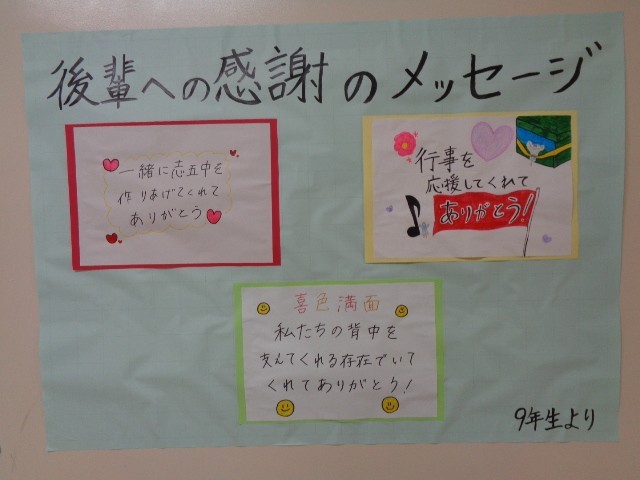 後輩への感謝のメッセージ
一緒に志五中を
作りあげてくれて
ありがとう
行事を
応援してくれて
ありがとう!
喜色満面
私たちの背中を
支えてくれる存在でいて
くれてありがとう!
9年生より